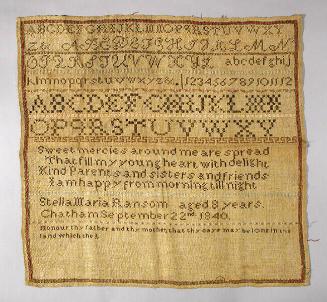 ABCDEFGHIJKLMNOPQRSTUVWXY
Z& ABCDEFGHIJKLMN
OPQRSTUVWXYZ abcdefghij
klmnopqrstuvwxyz& 123456789101112
ABCDEFGHIJKLMN
OPQRSTUVWXY
Sweet mercies around me are spread
That fill my young heart with delight
Kind Parents and sisters and friends
I am happy from morning till night
Stella Maria Ransom aged 8 years.
Chatham September 22nd 1840.
Honour thy father and thy mother, that thy days may be long in the
land which the L